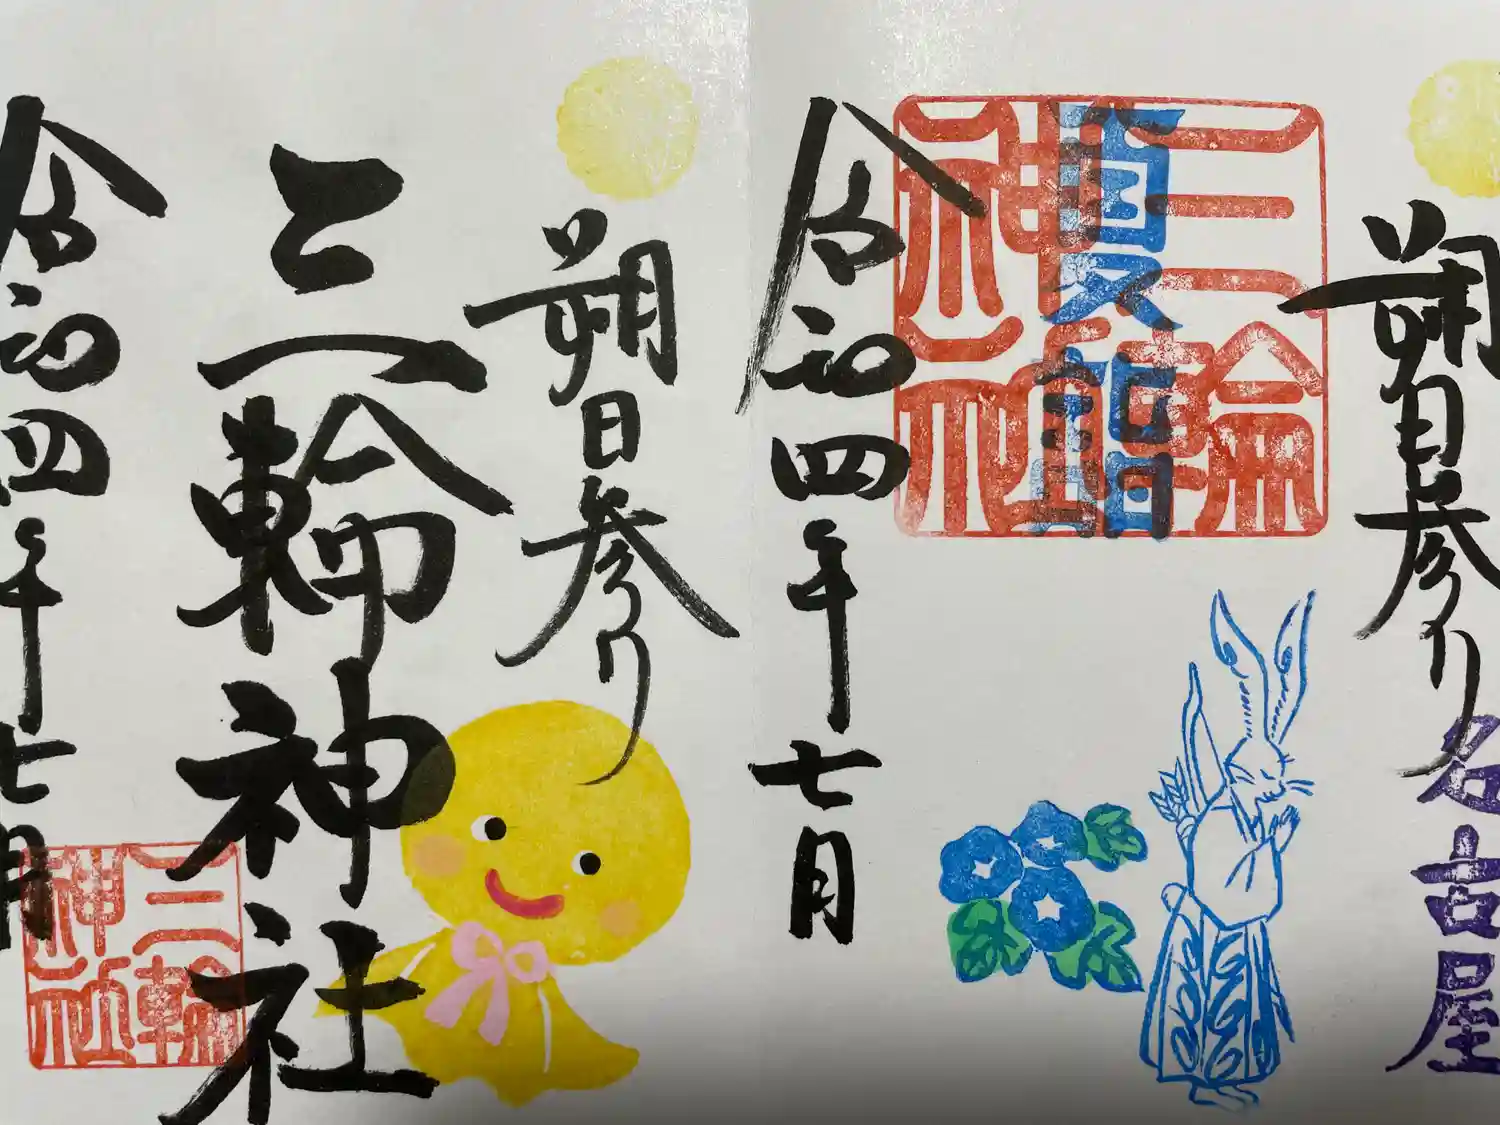 朔日参り
名古屋
三輪神社
夏詣
令和四年七月
朔日参り
三輪神社
令和四年七月
三輪神社